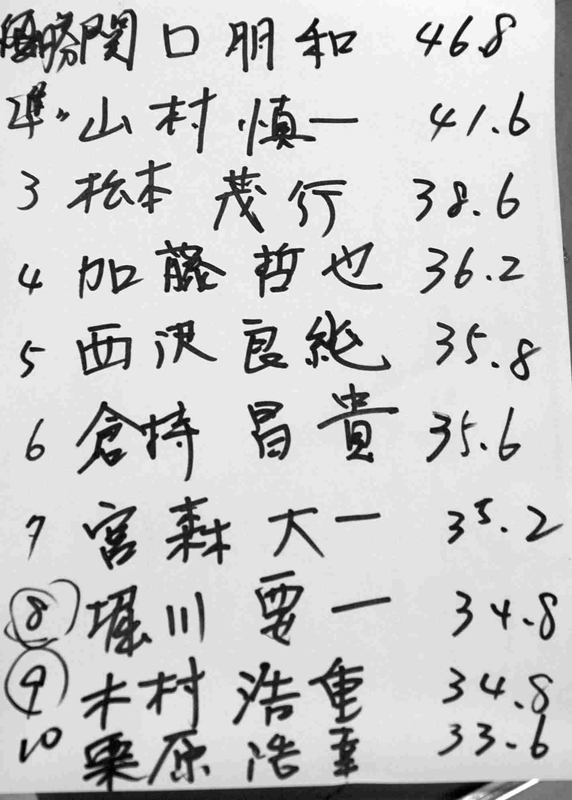 優勝 関口 朋和 46.8
準〃 山村 慎一 41.6
3 松本 茂行 38.6
4 加藤 哲也 36.2
5 西沢 良純 35.8
6 倉持 昌貴 35.6
7 宮森 大一 35.2
⑧ 堀川 要一 34.8
⑨ 木村 浩重 34.8
10 栗原 浩幸 33.6